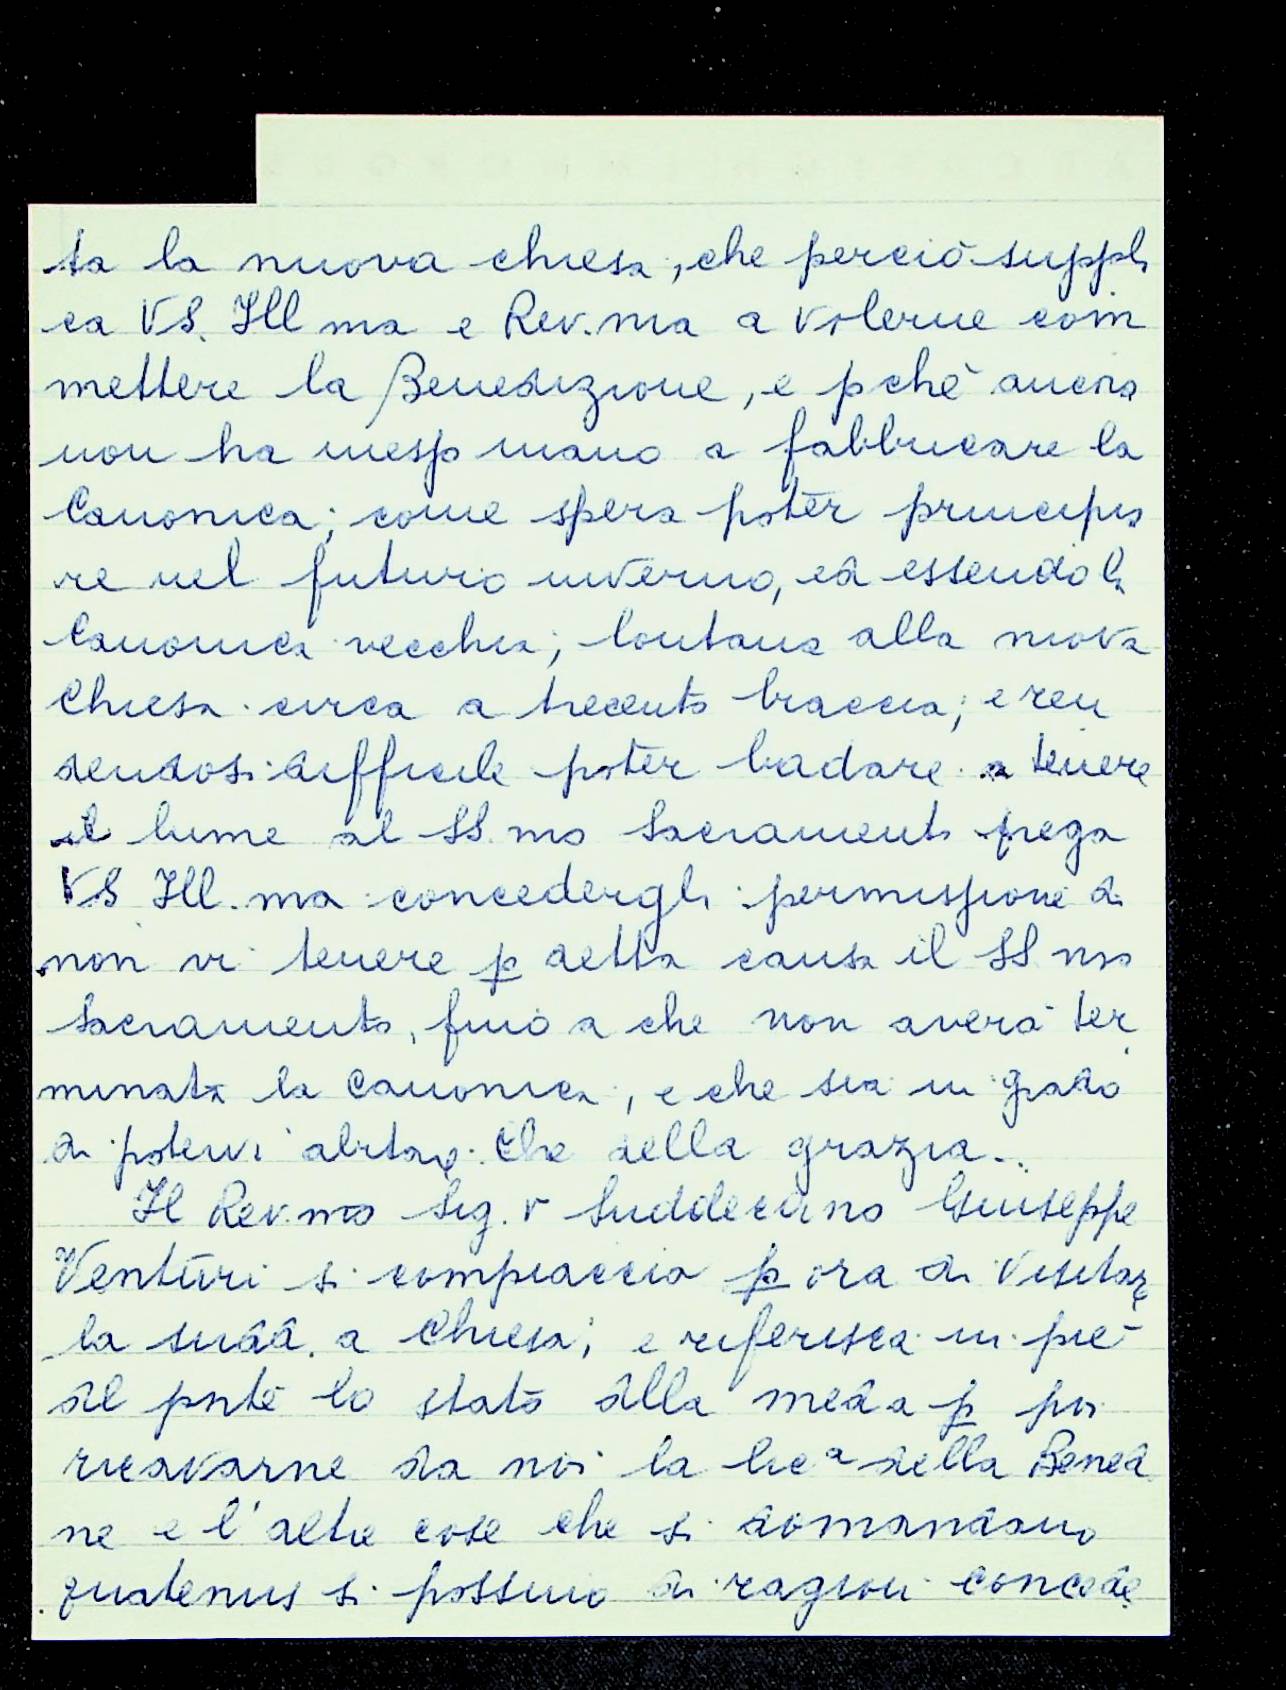 ta la nuova chiesa, che perciò suppli
ca VS. Ill ma e Rev.ma a volerne com
mettere la Benedizione, e pchè ancora
non ha messo mano a fabbricare la
Canonica; come spera poter principia
re nel futuro inverno, ed essendo la
Canonica vecchia; lontana alla nuova
Chiesa circa a trecento braccia; e ren
dendosi difficile poter badare a tenere
il lume al SS.mo Sacramento prega
VS Ill.ma concedergli permissione di
non vi tenere p detta causa il SS mo
Sacramento, fino a che non averà ter
minata la Canonica, e che sia in grado
di potervi abitare. Che della grazia..
Il Rev.mo Sig.r Suddecano Giuseppe
Venturi si compiaccia p ora di visitare
la sudd.a Chiesa; e riferisca in piè
del pnte lo stato della meda p poi
ricavarne da noi la lica della Bened
ne e l'altre cose che si domandano
quatenus si possino di ragion concede